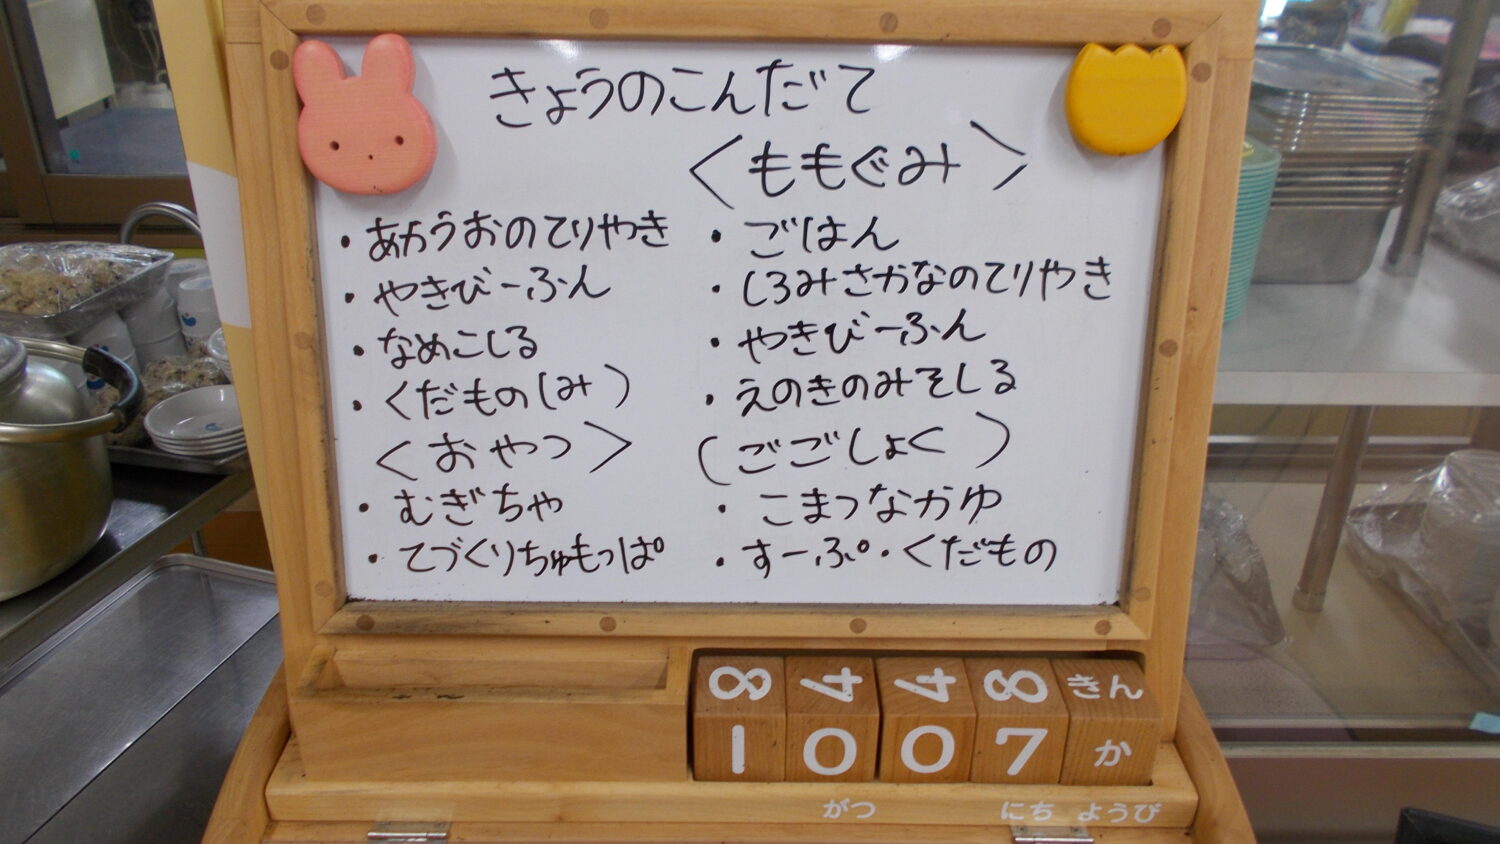 きょうのこんだて
<ももぐみ>
・あかうおのてりやき
・やきびーふん
・なめこしる
・くだもの(み)
<おやつ>
・むぎちゃ
・てづくりちゅもっぱ
・ごはん
・しろみさかなのてりやき
・やきびーふん
・えのきのみそしる
(ごごしょく)
・こまつなかゆ
・すーぷ・くだもの
8 4 4 8 きん
1 0 0 7 か
がつ にち ようび